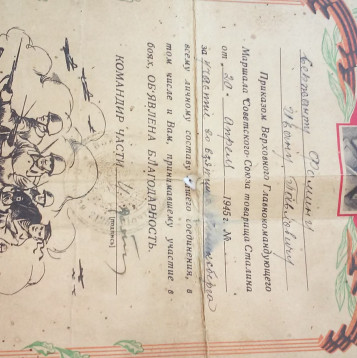 Сержанту Фомину
Ивану Павловичу
Приказом Верховного Главнокомандующего
Маршала Советского Союза товарища Сталина
от 20 апреля 1945 г. №
за участие во взятии
всему личному составу нашего соединения, в
том числе и Вам, принимавшему участие в
боях, ОБЪЯВЛЕНА БЛАГОДАРНОСТЬ.
КОМАНДИР ЧАСТИ
(подпись)